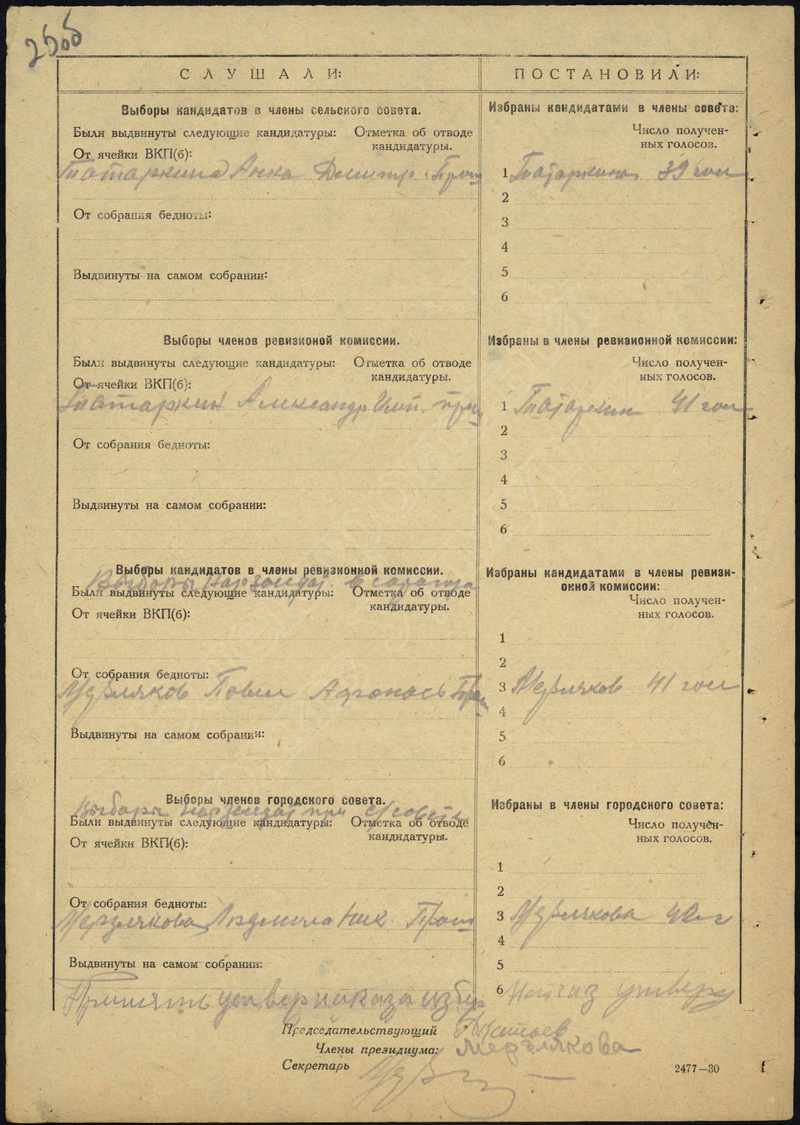 СЛУШАЛИ:
Выборы кандидатов в члены сельского совета.
Были выдвинуты следующие кандидатуры:
Отметка об отводе кандидатуры.
От ячейки ВКП(б):
Татаркина Анна Дмитр.
От собрания бедноты:
Выдвинуты на самом собрании:
Выборы членов ревизионой комиссии.
Были выдвинуты следующие кандидатуры:
Отметка об отводе
кандидатуры.
От ячейки ВКП(б):
Татаркин Александр
От собрания бедноты:
Выдвинуты на самом собрании:
Выборы кандидатов в члены ревизионной комиссии.
Выборы
Были выдвинуты следующие кандидатуры:
Отметка об отводе
кандидатуры.
От ячейки ВКП(б):
От собрания бедноты:
Мерзляков Павел Афонась
Выдвинуты на самом собрании:
Выборы членов городского совета.
Выборы при с/совете
Были выдвинуты следующие кандидатуры:
Отметка об отводе
кандидатуры.
От ячейки ВКП(б):
От собрания бедноты:
Мерзлякова Людмила Ник
Выдвинуты на самом собрании:
Принять наказ
ПОСТАНОВИЛИ:
Избраны кандидатами в члены совета:
Число получен-
ных голосов.
1 Татаркина 39 гол
2
3
4
5
6
Избраны в члены ревизионной комиссии:
Число получен-
ных голосов.
1 Татаркин 41 гол
2
3
4
5
6
Избраны кандидатами в члены ревизи-
онной комиссии:
Число получен-
ных голосов.
1
2
3 Мерзляков 41 гол
4
5
6
Избраны в члены городского совета:
Число получен-
ных голосов.
1
2
3 Мерзлякова
4
5
6 Наказ
Председательствующий
Члены президиума: Мерзлякова
Секретарь
2477—30